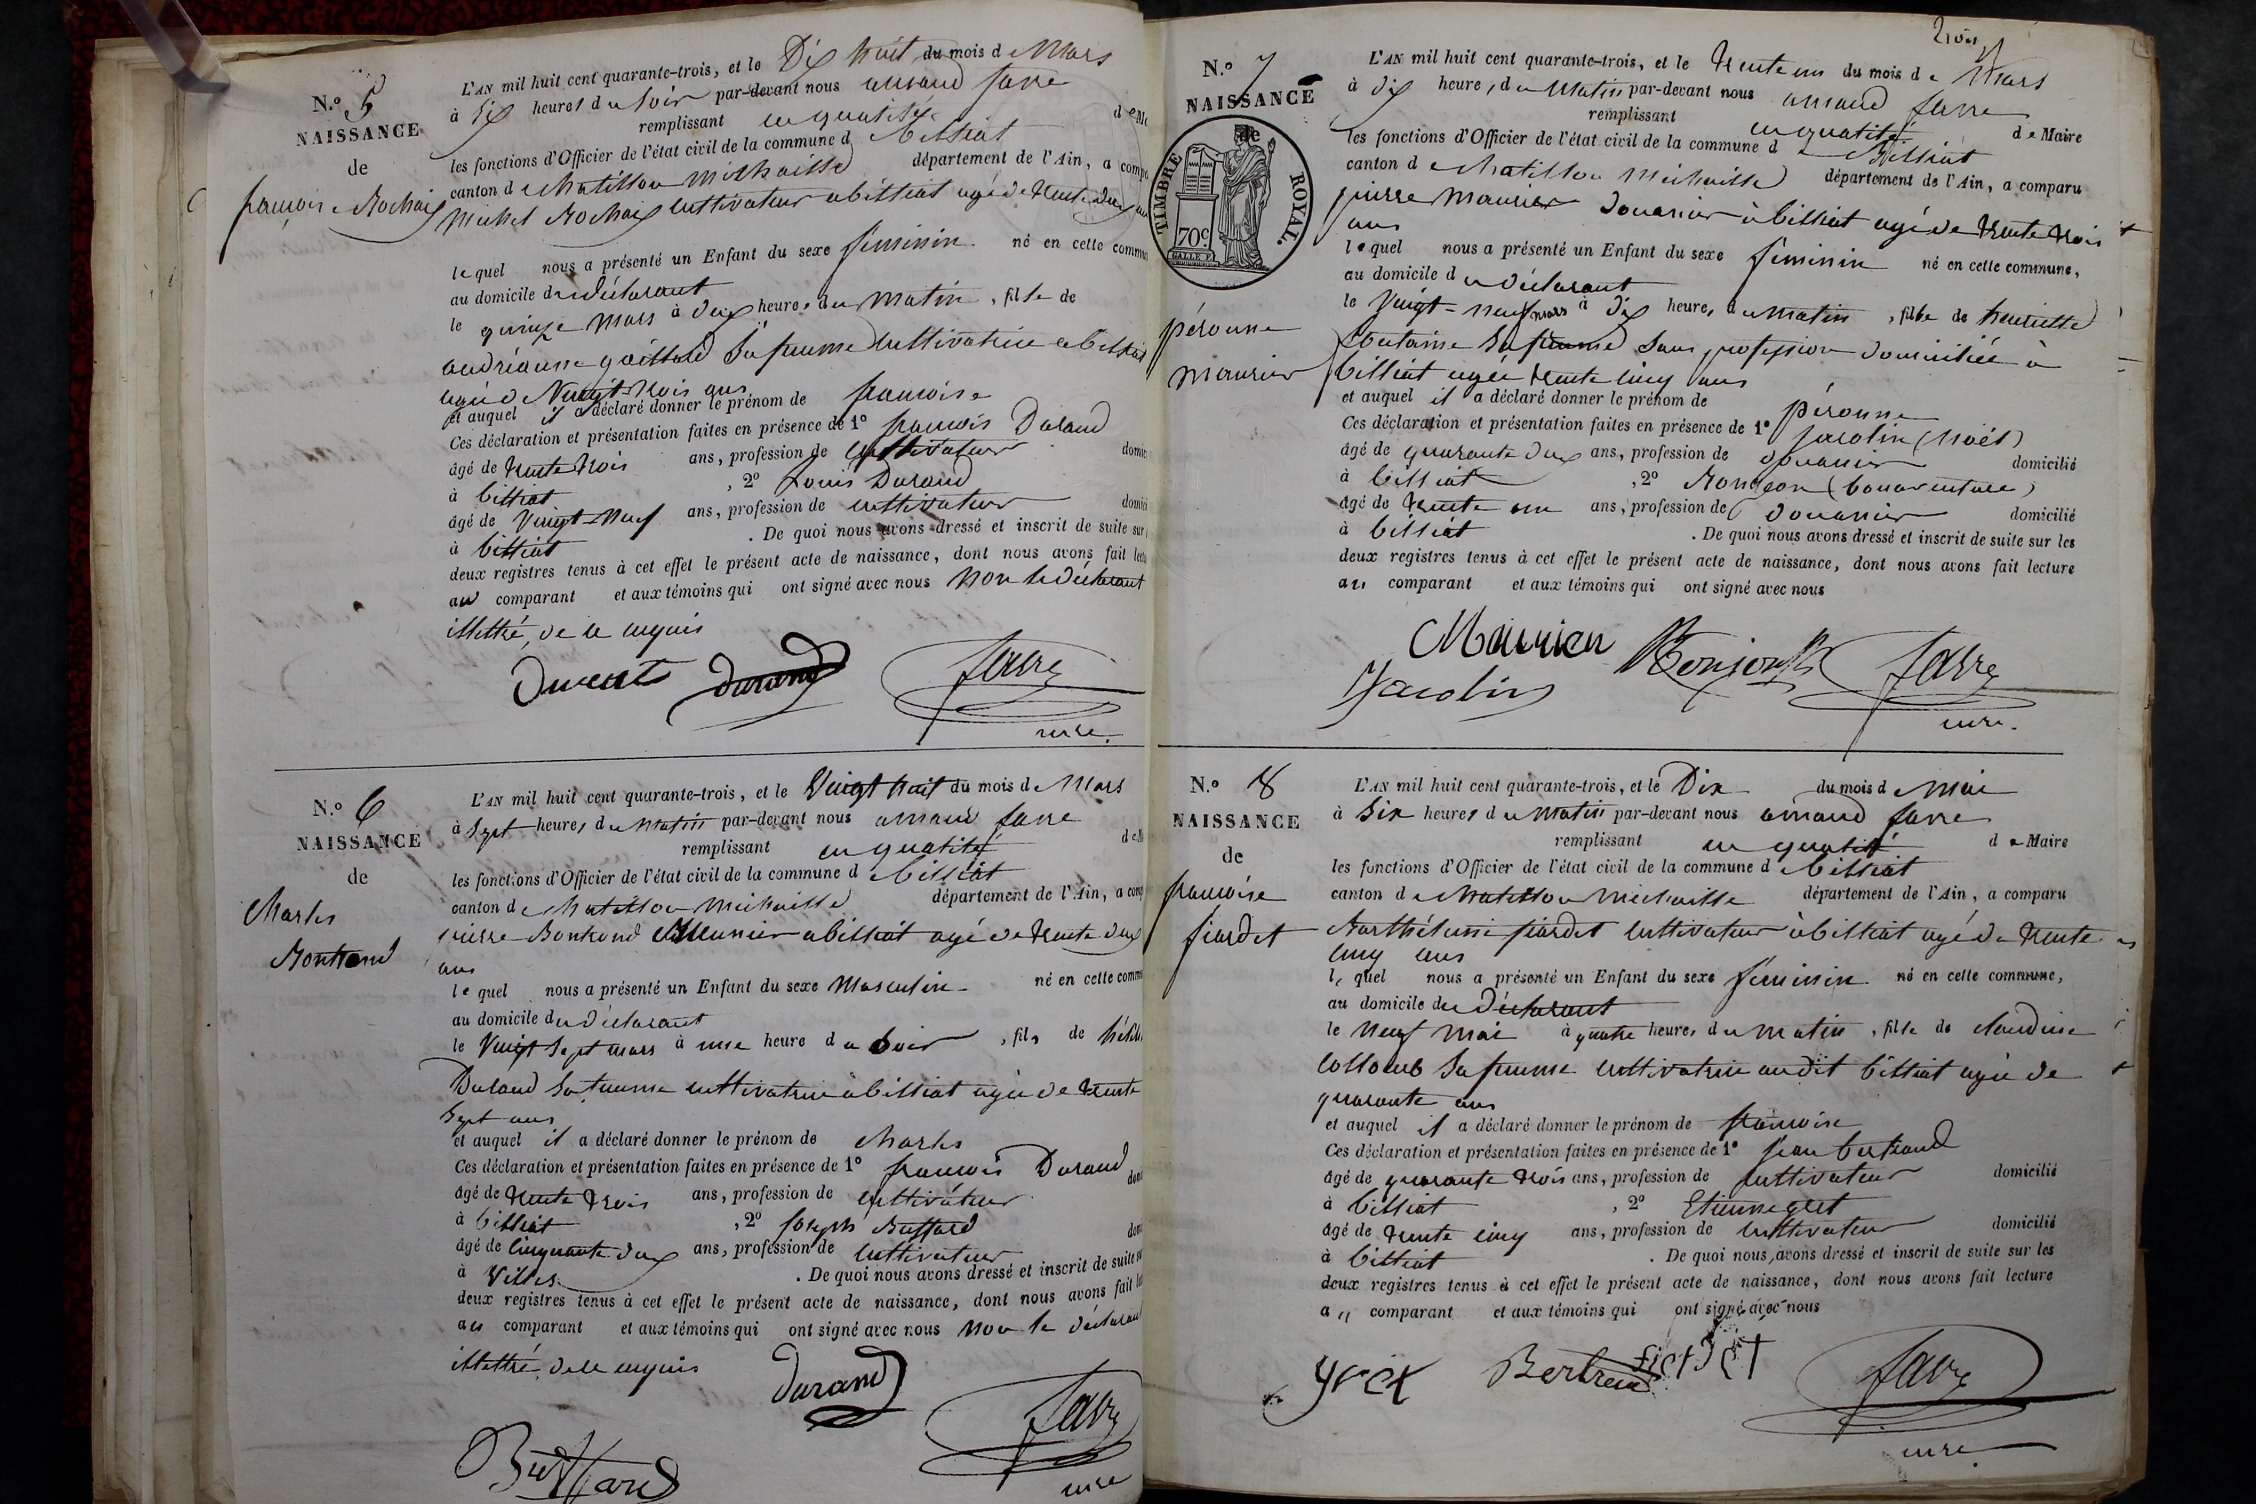 N.º 5
NAISSANCE
de
françoise Rochaix
L'AN mil huit cent quarante-trois, et le Dix huit du mois de Mars
à six heures du Soir par-devant nous amand favre
remplissant en qualité de
les fonctions d'Officier de l'état civil de la commune de billiat
canton de chatillon michaille département de l'Ain, a
michel Rochaix cultivateur a billiat agé de trente deux
lequel nous a présenté un Enfant du sexe féminin né en cette
au domicile du déclarant
le quinze mars à deux heures du matin, fille de
andrianne gaillard Sa femme cultivatrice a billiat
agée de Vingt-trois ans
et auquel il a déclaré donner le prénom de françoise
Ces déclaration et présentation faites en présence de 1º françois Durand
âgé de trente trois ans, profession de cultivateur
à billiat, 2º Louis Durand
âgé de Vingt-Neuf ans, profession de cultivateur
à billiat. De quoi nous avons dressé et inscrit de suite sur
deux registres tenus à cet effet le présent acte de naissance, dont nous avons fait
au comparant et aux témoins qui ont signé avec nous Non le déclarant
illettré, de ce enquis
durand
favre
mre.
N.º 6
NAISSANCE
de
Charles
Bontrond
L'AN mil huit cent quarante-trois, et le Vingt huit du mois de Mars
à Sept heures du Matin par-devant nous amand favre
remplissant en qualité de
les fonctions d'Officier de l'état civil de la commune de billiat
canton de chatillon michaille département de l'Ain, a
pierre Bontrond Meunier a billiat agé de trente deux
ans
lequel nous a présenté un Enfant du sexe Masculin né en cette
au domicile du déclarant
le Vingt Sept mars à une heure du Soir, fils de
Durand Sa femme cultivatrice a billiat agée de trente
Sept ans
et auquel il a déclaré donner le prénom de charles
Ces déclaration et présentation faites en présence de 1º françois Durand
âgé de trente trois ans, profession de cultivateur
à billiat, 2º Joseph Buffard
âgé de Cinquante deux ans, profession de cultivateur
à Villes. De quoi nous avons dressé et inscrit de suite
deux registres tenus à cet effet le présent acte de naissance, dont nous avons fait
au comparant et aux témoins qui ont signé avec nous Non le déclarant
illettré, de ce enquis
durand
favre
Buffard
mre
trois
N.º 7
NAISSANCE
de
TIMBRE ROYAL.
70c.
péronne
mourier
L'AN mil huit cent quarante-trois, et le trente un du mois de Mars
à dix heures du Matin par-devant nous amand favre
remplissant en qualité de Maire
les fonctions d'Officier de l'état civil de la commune de Billiat
canton de chatillon michaille département de l'Ain, a comparu
pierre Mourier Douanier à billiat agé de trente trois
ans
lequel nous a présenté un Enfant du sexe féminin né en cette commune,
au domicile du déclarant
le Vingt-neuf mars à dix heures du matin, fille de henriette
fontaine Sa femme Sans profession domiciliée à
billiat agée trente cinq ans
et auquel il a déclaré donner le prénom de péronne
Ces déclaration et présentation faites en présence de 1º jacolin (Noël)
âgé de quarante deux ans, profession de douanier domicilié
à billiat, 2º (bonaventure)
âgé de trente un ans, profession de douanier domicilié
à billiat. De quoi nous avons dressé et inscrit de suite sur les
deux registres tenus à cet effet le présent acte de naissance, dont nous avons fait lecture
au comparant et aux témoins qui ont signé avec nous
Mourier
Jacolin
favre
mre.
N.º 8
NAISSANCE
de
françoise
fiardet
L'AN mil huit cent quarante-trois, et le Dix du mois de Mai
à Six heures du Matin par-devant nous amand favre
remplissant en qualité de Maire
les fonctions d'Officier de l'état civil de la commune de billiat
canton de chatillon michaille département de l'Ain, a comparu
Barthélemi fiardet cultivateur à billiat agé de trente
cinq ans
lequel nous a présenté un Enfant du sexe féminin né en cette commune,
au domicile du Déclarant
le neuf mai à quatre heures du matin, fille de claudine
collomb Sa femme cultivatrice audit billiat agée de
quarante ans
et auquel il a déclaré donner le prénom de françoise
Ces déclaration et présentation faites en présence de 1º jean bertrand
âgé de quarante trois ans, profession de cultivateur domicilié
à billiat, 2º Etienne
âgé de trente cinq ans, profession de cultivateur domicilié
à billiat. De quoi nous avons dressé et inscrit de suite sur les
deux registres tenus à cet effet le présent acte de naissance, dont nous avons fait lecture
au comparant et aux témoins qui ont signé avec nous
Bertrand
fiardet
favre
mre.